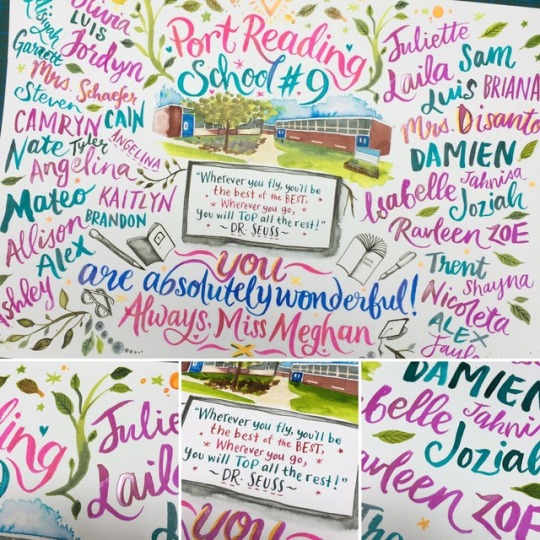 Olivia
LUIS
Garrett
Jordyn
Mrs. Schaefer
Steven
CAMRYN
CAIN
Nate
Tyler
ANGELINA
Angelina
Mateo
KAITLYN
BRANDON
Allison
Alex
Ashley
Port Reading
School #9
"Wherever you fly, you'll be
the best of the BEST.
Wherever you go,
you will TOP all the rest!"
~ DR. SEUSS ~
you
are absolutely wonderful!
Always, Miss Meghan
Juliette
Laila
Sam
Luis
BRIANA
Mrs. Disanto
DAMIEN
Isabelle
Jahnisa
Joziah
Ravleen
ZOE
Trent
Shayna
Nicoleta
ALEX
ing
Julie
Laila
"Wherever you fly, you'll be
the best of the BEST.
Wherever you go,
you will TOP all the rest!"
~ DR. SEUSS ~
you
DAMIEN
belle
Jahni
Joziah
avleen
ZOE